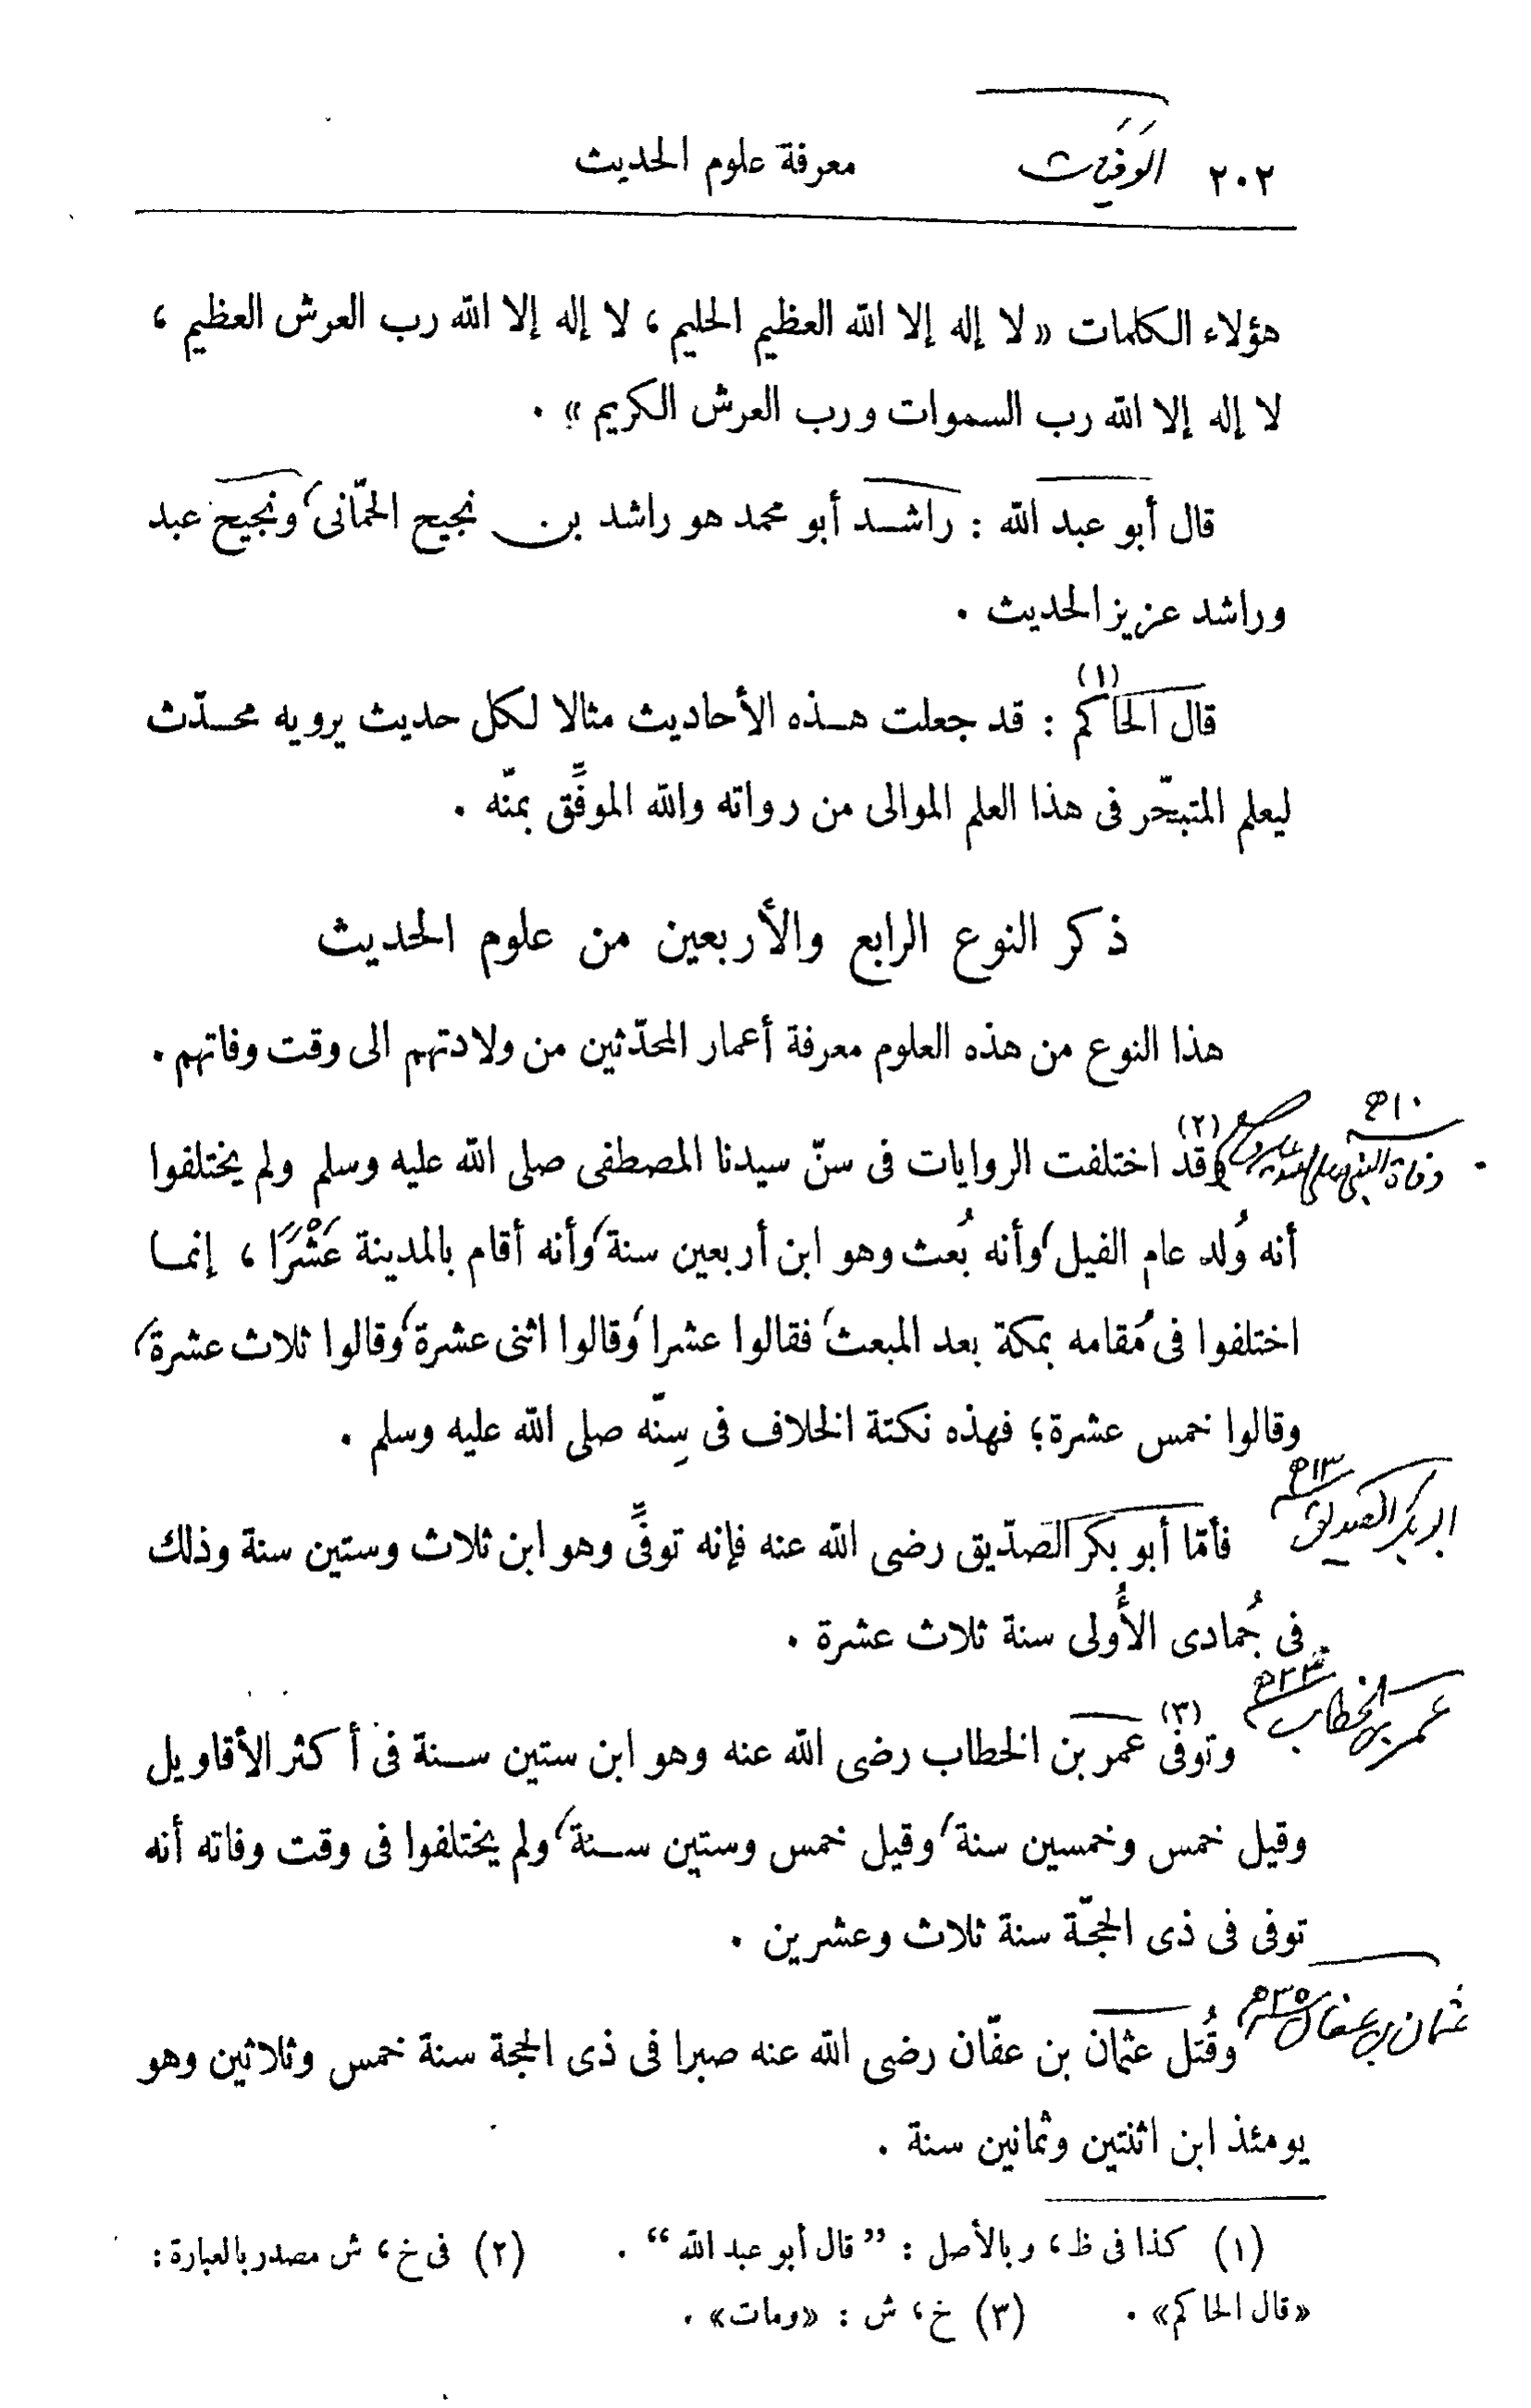 ٢٠٢ الوفيات معرفة علوم الحديث
هؤلاء الكلمات «لا إله إلا الله العظيم الحليم، لا إله إلا الله رب العرش العظيم،
لا إله إلا الله رب السموات ورب العرش الكريم» .
قال أبو عبد الله : راشد أبو محمد هو راشد بن نجيح الحمّانى، ونجيح عبد
وراشد عزيز الحديث .
قال الحاكم (١) : قد جعلت هذه الأحاديث مثالا لكل حديث يرويه محدّث
ليعلم المتبحّر فى هذا العلم الموالى من رواته والله الموفِّق بمنّه .
ذكر النوع الرابع والأربعين من علوم الحديث
هذا النوع من هذه العلوم معرفة أعمار المحدّثين من ولادتهم الى وقت وفاتهم .
١٠ھ
وفاة النبي صلى الله عليه وسلم
(٢) وقد اختلفت الروايات فى سنّ سيدنا المصطفى صلى الله عليه وسلم ولم يختلفوا
أنه وُلد عام الفيل، وأنه بُعث وهو ابن أربعين سنة، وأنه أقام بالمدينة عَشْرًا، إنما
اختلفوا فى مُقامه بمكة بعد المبعث، فقالوا عشرا، وقالوا اثنى عشرة، وقالوا ثلاث عشرة،
وقالوا خمس عشرة؛ فهذه نكتة الخلاف فى سِنّه صلى الله عليه وسلم .
١٣ھ
ابو بكر الصديق
فأمّا أبو بكر الصّدّيق رضى الله عنه فإنه توفِّى وهو ابن ثلاث وستين سنة وذلك
فى جُمادى الأُولى سنة ثلاث عشرة .
٢٣ھ
عمر بن الخطاب
وتوفى (٣) عمر بن الخطاب رضى الله عنه وهو ابن ستين سنة فى أكثر الأقاويل
وقيل خمس وخمسين سنة، وقيل خمس وستين سنة، ولم يختلفوا فى وقت وفاته أنه
توفى فى ذى الحجّة سنة ثلاث وعشرين .
عثمان بن عفان ٣٥ھ
وقُتل عثمان بن عفّان رضى الله عنه صبرا فى ذى الحجة سنة خمس وثلاثين وهو
يومئذ ابن اثنتين وثمانين سنة .
(١) كذا فى ظ، وبالأصل : ”قال أبو عبد الله“ . (٢) فى خ، ش مصدر بالعبارة :
«قال الحاكم» . (٣) خ، ش : «ومات» .